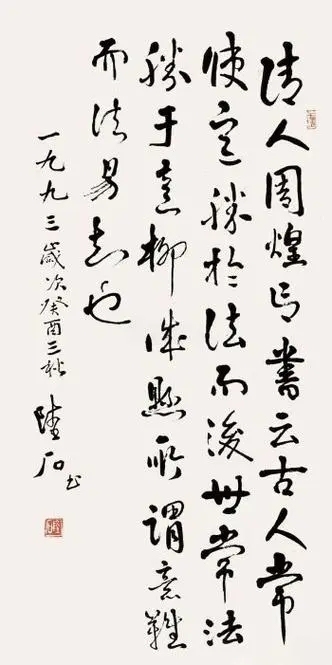 清人周煌書云古人常
使意勝於法而後世常法
勝于意柳诚懸所謂意難
而法易知也
一九九三歲次癸酉三秋 陸石书